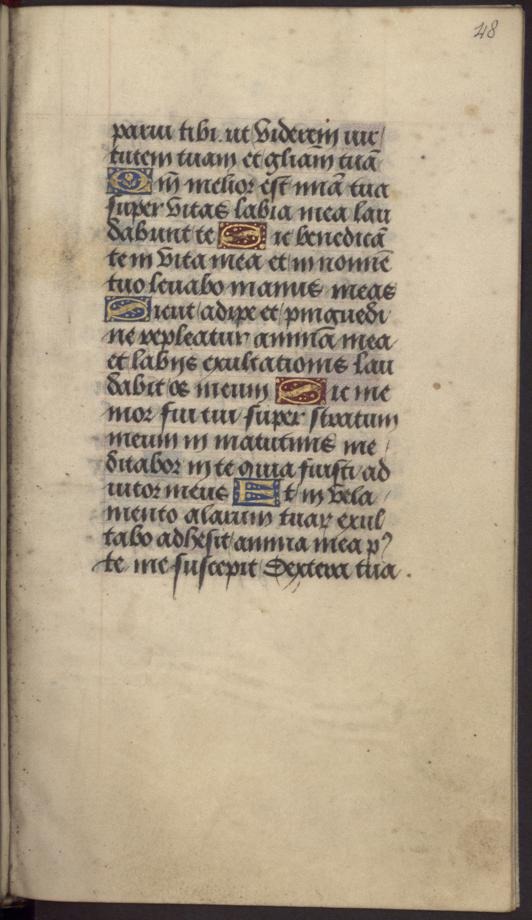 48
parui tibi. ut viderem uir/
tutem tuam et gl̄iam tuā
Q m̄ melior est m̄ia tua
super vitas labia mea lau
dabunt te S ic benedicā
te in vita mea et in nomīe
tuo leuabo manus meas
S icut adipe et pinguedi
ne repleatur anima mea
et labijs exultationis lau
dabit os meum S ic me
mor fui tui super stratum
meum in matutinis me/
ditabor in te quia fuisti ad
iutor meus E t in vela
mento alarum tuaꝝ exul
tabo adhesit anima mea pꝰ
te me suscepit dextera tua .